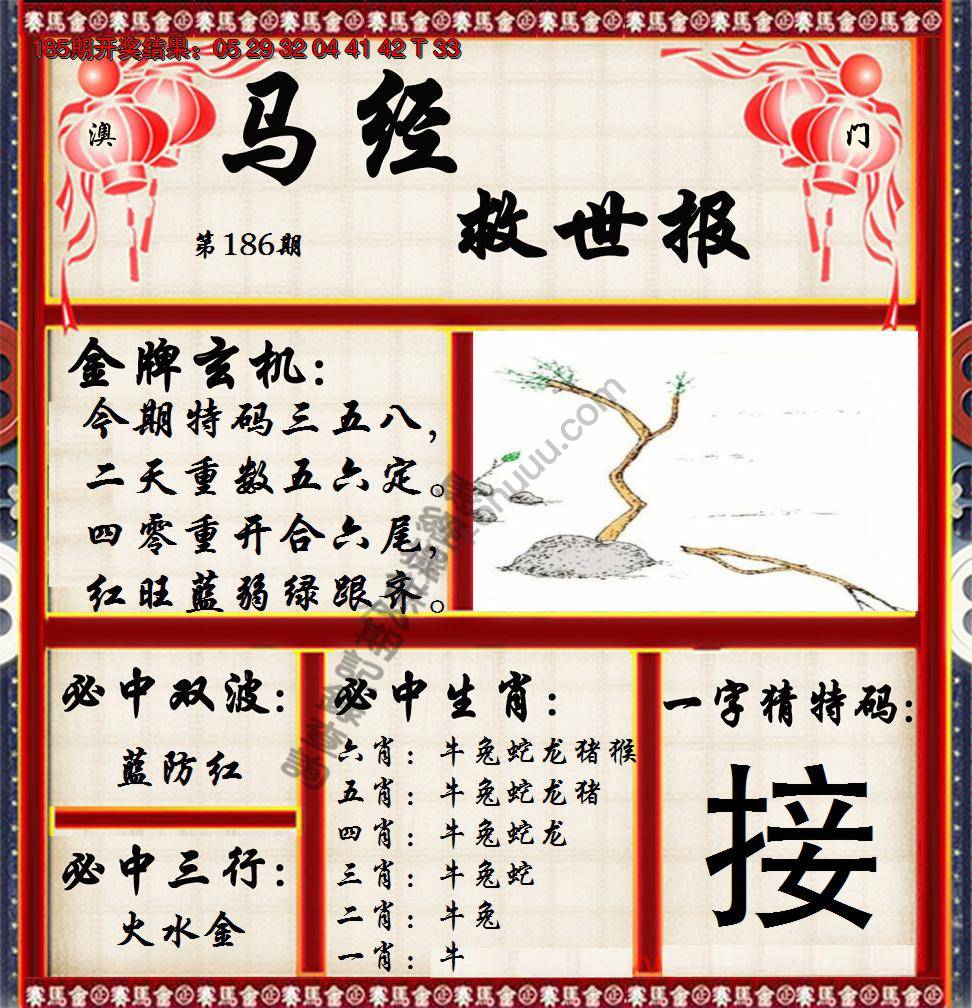 185期开奖结果：05 29 32 04 41 42 T 33
澳门
马经
救世报
第186期
金牌玄机：
今期特码三五八，
二天重数五六定。
四零重开合六尾，
红旺蓝弱绿跟齐。
必中双波：
蓝防红
必中三行：
火水金
必中生肖：
六肖：牛兔蛇龙猪猴
五肖：牛兔蛇龙猪
四肖：牛兔蛇龙
三肖：牛兔蛇
二肖：牛兔
一肖：牛
一字猜特码：
接